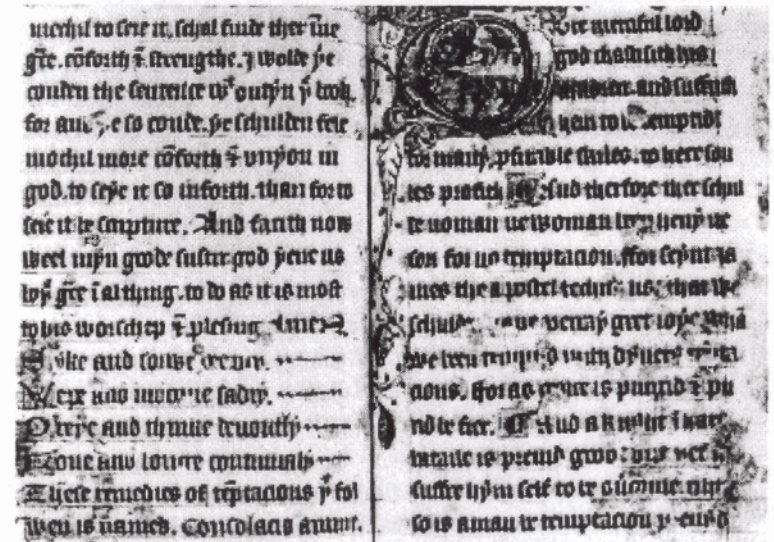 mechil to seie it. schal finde ther īne
gr̄e. cōforth ⁊ strengthe. ⁊ wolde ȝe
couden the sentence wᵗ outyn yᵉ book
for and ȝe so coude. ȝe schulden fele
mochil more cōforth ⁊ vnyon in
god. to seye it so inforth. than for to
seie it be scripture. And farith now
weel myn goode suster. god yeue us
hys gr̄e ī al thing. to do as it is most
to his worschep ⁊ plesing Amen
and
Wepe and sadly.
Preye and deuoutly
Loue and continualy
These remedies of tēptacions yᵗ fol
wen is named. Consolacio anime.
merciful lord
god chastisith his
and suffrith
hem to be temptid
for many skiles. to here sou
les profith ¶ And therfore ther schul
de noman ne woman ben heuy ne
for no temptacion. ffor seynt Ja
mes the apostel techith us. that we
gret ioye
we been with dyuers tēpta
cions. ffor as is ⁊ pu
rid be fier. ¶ And a knight ī hard
bataile is preuid good
suffre hym self to be
so is a man be temptacion